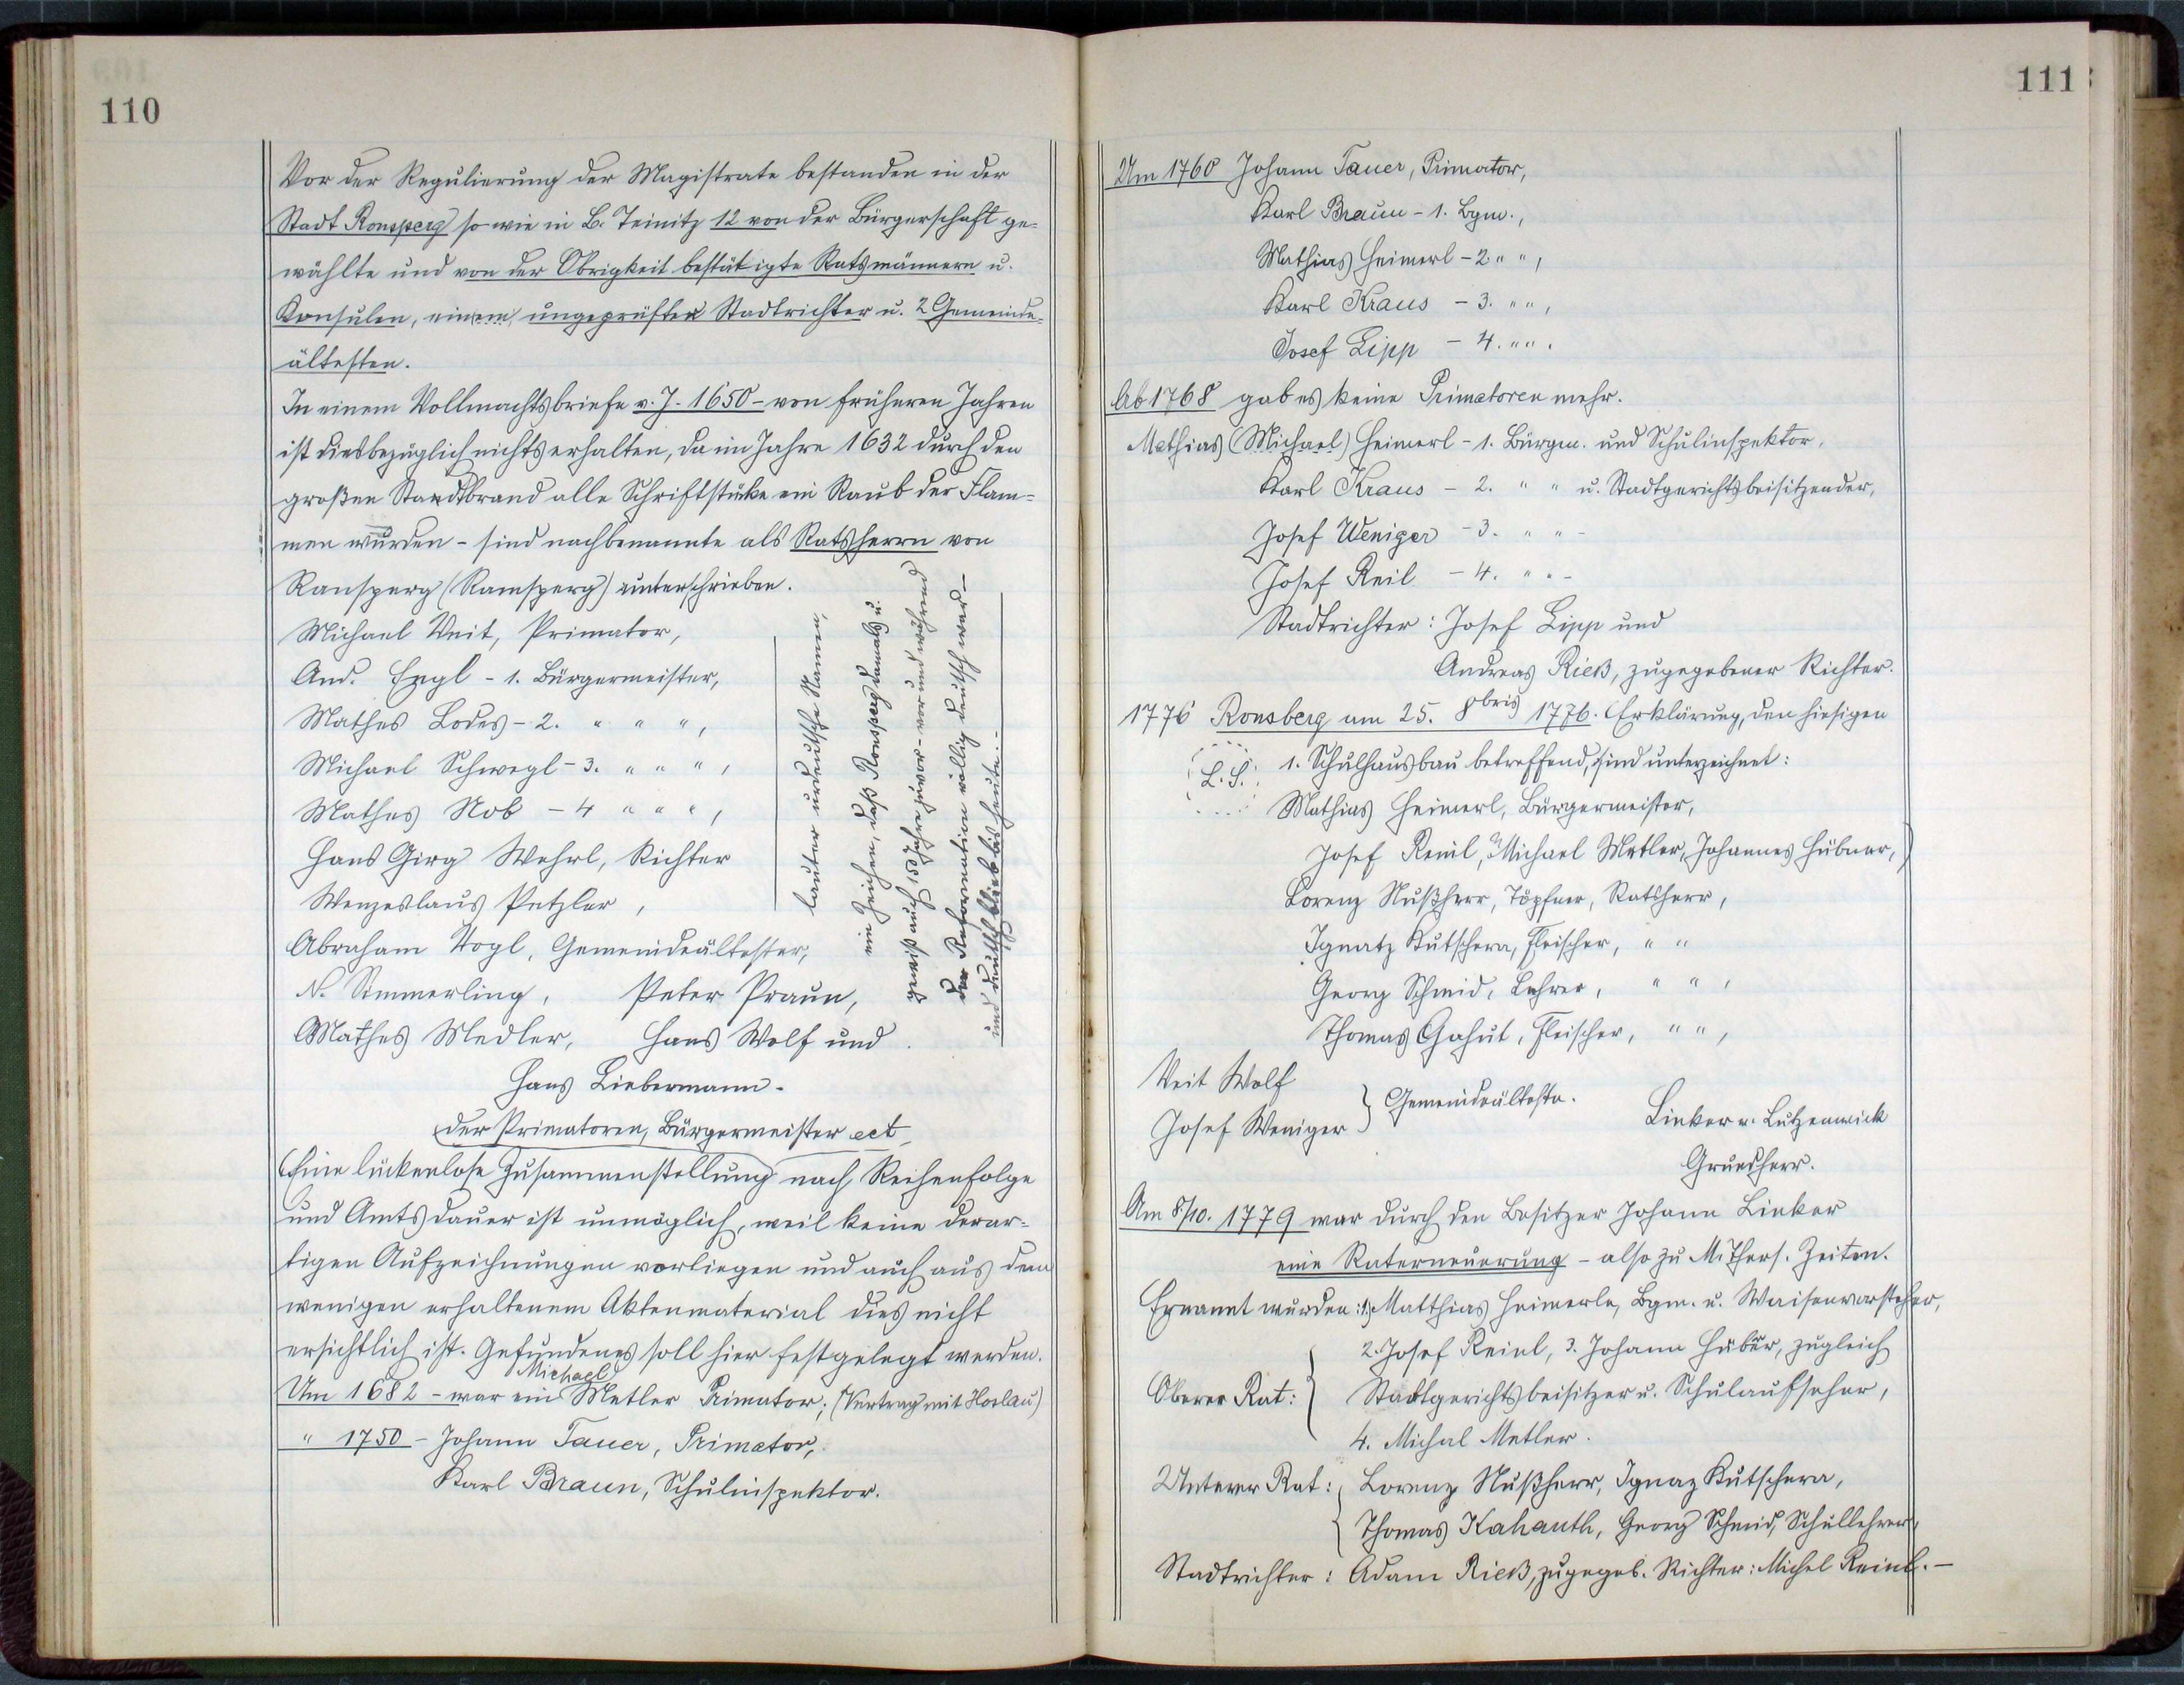 110
Vor der Regulierung der Magistrate bestanden in der
Stadt Ronsperg so wie in B. Teinitz 12 von der Bürgerschaft ge=
wählte und von der Obrigkeit bestätigte Ratsmännern u.
Konsulen, einem ungeprüften Stadtrichter u. 2 Gemeinde=
ältesten.
In einem Vollmachtsbriefe v. J. 1650 - von früheren Jahren
ist diesbezüglich nichts erhalten, da im Jahre 1632 durch den
großen Standtbrand alle Schriftstücke ein Raub der Flam=
men wurden - sind nachbenannte als Ratsherrn von
Ransperg (Ramsperg) unterschrieben.
Michael Veit, Primator,
And. Engl - 1. Bürgermeister,
Mathes Lodes - 2. " " ",
Michael Schwegl - 3. " " ",
Mathes Nob - 4 " " ",
Hans Girg Wehrl, Richter
Wenzeslaus Petzler,
Abraham Vogl, Gemeindeältester,
N. Simmerling, Peter Praun,
Mathes Medler, Hans Wolf und
Hans Liebermann.
lauter urdeutsche Namen,
ein Zeichen, daß Ronsperg damals u.
gewiß auch 150 Jahre zuvor - vor und während
der Reformation völlig deutsch war -
und deutsch blieb bis heute. -
der Primatoren, Bürgermeister ect
Eine lückenlose Zusammenstellung nach Reihenfolge
und Amtsdauer ist unmöglich, weil keine derar=
tigen Aufzeichnungen vorliegen und auch aus dem
wenigen erhaltenem Aktenmaterial dies nicht
ersichtlich ist. Gefundenes soll hier festgelegt werden.
Michael
Um 1682 - war ein Metler Primator; (Vertrag mit Hoslau)
" 1750 - Johann Tauer, Primator,
Karl Braun, Schulinspektor.
111
Um 1760 Johann Tauer, Primator,
Karl Braun - 1. Bgm.,
Mathias Heimerl - 2. " ",
Karl Kraus - 3. " ",
Josef Lipp - 4. " ".
Ab 1768 gab es keine Primatoren mehr.
Mathias (Michael) Heimerl - 1. Bürgm. und Schulinspektor,
Karl Kraus - 2. " " u. Stadtgerichtsbeisitzender,
Josef Weniger - 3. " " -
Josef Reil - 4. " " -
Stadtrichter: Josef Lipp und
Andreas Rieß, zugegebener Richter.
1776 Ronsberg am 25. 8bris 1776. Erklärung, den hiesigen
L. S. 1. Schulhausbau betreffend, sind unterzeichnet:
Mathias Heimerl, Bürgermeister,
Josef Reinl, Michael Metler, Johannes Hübner,
Lorenz Nußherr, Töpfner, Ratsherr,
Ignatz Kutschera, Fleischer, " "
Georg Schmid, Lehrer, " ",
Thomas Gahut, Fleischer, " ",
Veit Wolf
Josef Weniger } Gemeindeälteste.
Linker v. Lutzenwick
Grundherr.
Am 8/10. 1779 war durch den Besitzer Johann Linker
eine Raterneuerung - also zu M. Thers. Zeiten.
Ernannt wurden: 1. Matthias Heimerle, Bgm. u. Waisenvorsteher,
2. Josef Reinl, 3. Johann Hüber, zugleich
Oberer Rat: { Stadtgerichtsbeisitzer u. Schulaufseher,
4. Michal Metler.
Unterer Rat: { Lorenz Nußherr, Ignaz Kutschera,
Thomas Kahauth, Georg Schmid, Schullehrer,
Stadtrichter: Adam Rieß, zugegeb. Richter: Michel Reinl. -